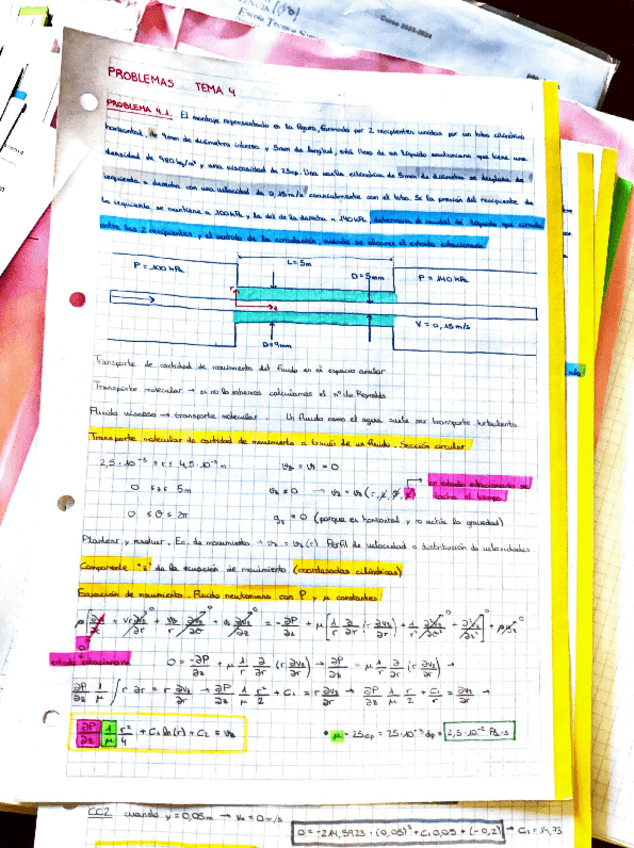 Curso 2023-2024
Escola Tècnica
PROBLEMAS TEMA 4
PROBLEMA 4.1. El montaje representado en la figura, formado por 2 recipientes unidos por un tubo cilíndrico
horizontal, de 9mm de diámetro interno y 5mm de longitud, está lleno de un líquido newtoniano que tiene una
densidad de 980 kg/m³ y una viscosidad de 25cp. Una varilla cilíndrica de 5mm de diámetro se desplaza de
izquierda a derecha con una velocidad de 0,15m/s coaxialmente con el tubo. Si la presión del recipiente de
la izquierda se mantiene a 100kPa y la del de la derecha a 140kPa, determina el caudal de líquido que circula
entre los 2 recipientes y el sentido de la circulación, cuando se alcance el estado estacionario.
P = 100 kPa
L = 5m
D = 5mm
P = 140 kPa
r
z
V = 0,15m/s
D = 9mm
Transporte de cantidad de movimiento del fluido en el espacio anular
Transporte molecular → si no lo sabemos calculamos el nº de Reynolds
Fluido viscoso → transporte molecular Un fluido como el agua suele ser transporte turbulento
Transporte molecular de cantidad de movimiento a través de un fluido. Sección circular
2,5·10⁻³ ≤ r ≤ 4,5·10⁻³ m vθ = vr = 0
en estado estacionario se
0 ≤ z ≤ 5m vz ≠ 0 → vz = vz (r, z, θ, t)
tacha el tiempo
0 ≤ θ ≤ 2π gz = 0 (porque es horizontal y no actúa la gravedad)
Plantear y resolver. Ec. de movimiento → vz = vz(r) Perfil de velocidad o distribución de velocidades
Componente "z" de la ecuación de movimiento (coordenadas cilíndricas)
Ecuación de movimiento. Fluido newtoniano con ρ y μ constantes
ρ[∂vz/∂t + vr ∂vz/∂r + vθ/r ∂vz/∂θ + vz ∂vz/∂z] = -∂P/∂z + μ[1/r ∂/∂r (r ∂vz/∂r) + 1/r² ∂²vz/∂θ² + ∂²vz/∂z²] + ρgz
estado estacionario
0 = -∂P/∂z + μ 1/r ∂/∂r (r ∂vz/∂r) → ∂P/∂z = μ 1/r ∂/∂r (r ∂vz/∂r) →
∂P/∂z 1/μ ∫ r ∂r = r ∂vz/∂r → ∂P/∂z 1/μ r²/2 + C₁ = r ∂vz/∂r → ∂P/∂z 1/μ r/2 + C₁/r = ∂vz/∂r →
∂P/∂z 1/μ r²/4 + C₁ ln(r) + C₂ = vz
• μ = 25cp = 25·10⁻³ dp = 2,5·10⁻² Pa·s
CC2 cuando y = 0,05m → vx = 0 m/s
0 = -214,5923 · (0,05)² + C₁ 0,05 + (-0,2) → C₁ = 14,73